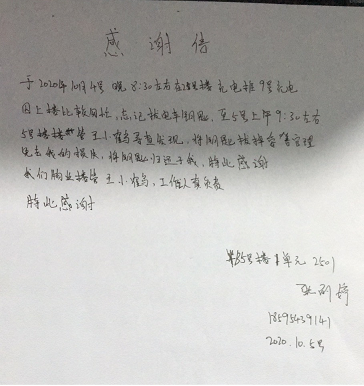 感谢信
于2020年10月4号 晚8:30左右在25号楼充电桩9号充电
因上楼比较匆忙,忘记拔电车钥匙,至5号上午9:30左右
5号楼楼管王小鹤寻查发现,将钥匙拔掉
我的,将钥匙归还于我,特此感谢
我们物业楼管王小鹤,工作认真负责
特此感谢
25号楼1单元2501
18595439141
2020.10.5号